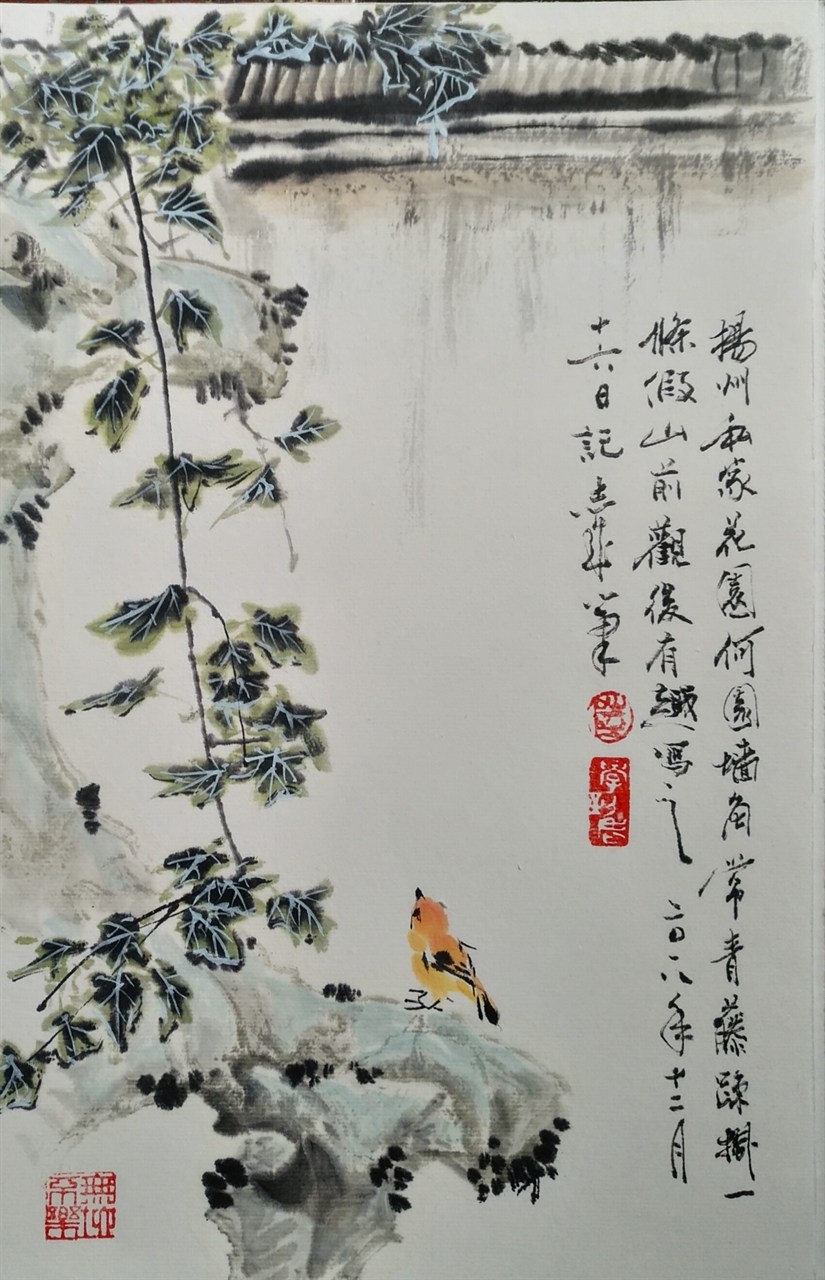 揚州私家花園何園墙角常青藤疎掛一
條假山前觀後有趣寫之 二〇一八年十二月
十六日記志華筆